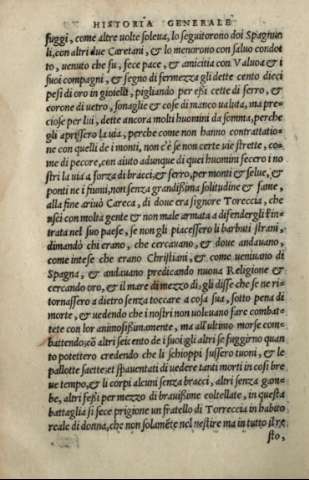 HISTORIA GENERALE
fuggi, come altre uolte soleua, lo seguitorono doi Spagnuo
li, con altri due Caretani, & lo menorono con saluo condot
to, uenuto che fu, fece pace, & amicitia con Valuoa & i
suoi compagni, & segno di fermezza gli dette cento dieci
pesi di oro in gioielli, pigliando per essi cette di ferro, &
corone di uetro, sonaglie & cose di manco ualuta, ma pre
ciose per lui, dette ancora molti huomini da somma, perche
gli aprissero la uia, perche come non hanno contrattatio=
ne con quelli de i monti, non c'è se non certe uie strette, co=
me di pecore, con aiuto adunque di quei huomini fecero i no
stri la uia a forza di bracci, & ferro, per monti & selue, &
ponti ne i fiumi, non senza grandissima solitudine & fame,
alla fine ariuò Careca, di doue era signore Toreccia, che
uscì con molta gente & non male armata a difendergli l'in=
trata nel suo paese, se non gli piacessero li barbuti strani,
dimandò chi erano, che cercauano, & doue andauano,
come intese che erano Christiani, & come ueniuano di
Spagna, & andauano predicando nuoua Religione &
cercando oro, & il mare di mezzo dì, gli disse che se ne ri=
tornassero a dietro senza toccare a cosa sua, sotto pena di
morte, & uedendo che i nostri non uoleuano fare combat=
tete con lor animosissimamente, ma all'ultimo morse com=
battendo; cō altri seicento de i suoi gli altri se fuggirno quan
to potettero credendo che li schioppi fussero tuoni, & le
pallotte saette: et spauentati di uedere tanti morti in così bre
ue tempo, & li corpi alcuni senza bracci, altri senza gam=
be, altri fessi per mezzo di brauissime coltellate, in questa
battaglia si fece prigione un fratello di Torreccia in habito
reale di donna, che non solamēte nel uestire ma in tutto il re
sto,